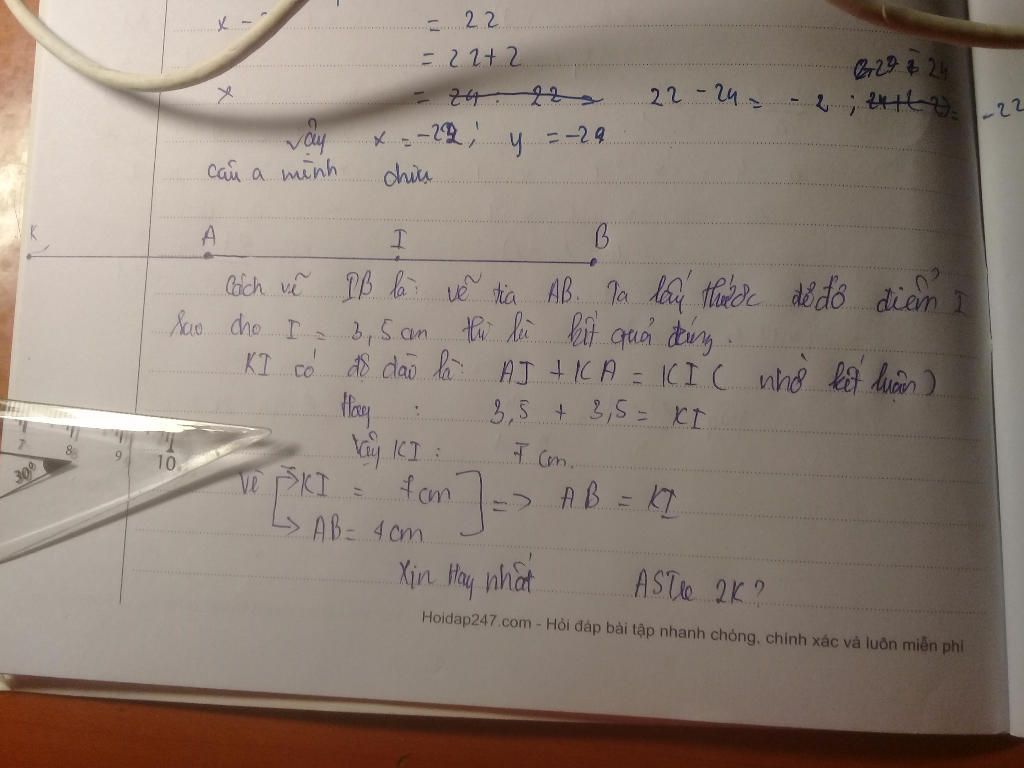 x - = 22
= 22 + 2
x = 24 . 22 22 - 24 = - 2 ; = -22
Vậy x = -22; y = -24
câu a mình chịu
K A I B
Cách vẽ IB là: vẽ tia AB. Ta lấy thước để đo điểm I
sao cho I = 3,5 cm thì là kết quả đúng.
KI có độ dài là: AI + KA = KI ( nhờ kết luận)
Hay : 3,5 + 3,5 = KI
Vậy KI : 7 cm.
Vì KI = 7cm => AB = KI
AB = 7cm
Xin Hay nhất ASTLE 2K?
7 8 9 10
30°
Hoidap247.com - Hỏi đáp bài tập nhanh chóng, chính xác và luôn miễn phí